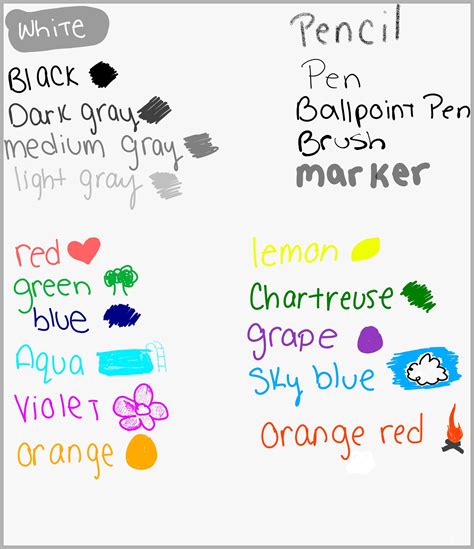 White
Black
Dark gray
medium gray
light gray
Pencil
Pen
Ballpoint Pen
Brush
marker
red
green
blue
Aqua
Violet
orange
lemon
Chartreuse
grape
Sky blue
Orange red